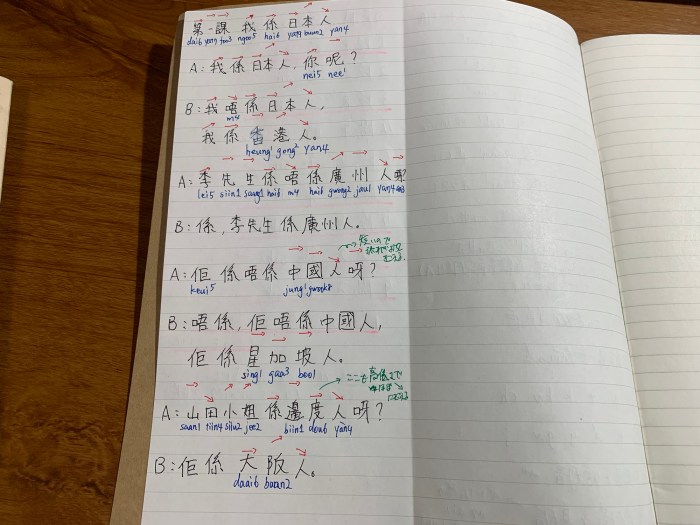 第一課 我係日本人
daai6 yat1 fo3 ngoo5 hai6 yat9 buun2 yan4
A: 我係日本人, 你呢?
nei5 nee1
B: 我唔係日本人,
m4
我係香港人。
heung1 gong2 yan4
A: 李先生係唔係廣州人呀?
lei5 siin1 saang1 hai6 m4 hai6 gwong2 jau1 yan4
B: 係, 李先生係廣州人。
A: 佢係唔係中國人呀?
keui5 jung1
B: 唔係, 佢唔係中國人,
佢係星加坡人。
sing1 gaa3 boo1
A: 山田小姐係邊度人呀?
saan1 tiin4 siiu2 jee2 biin1 dou6 yan4
B: 佢係大阪人。
daai6 baan2